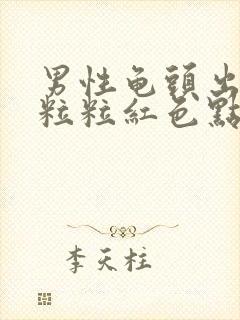 男性龟頭出
粒粒紅色點
李天柱